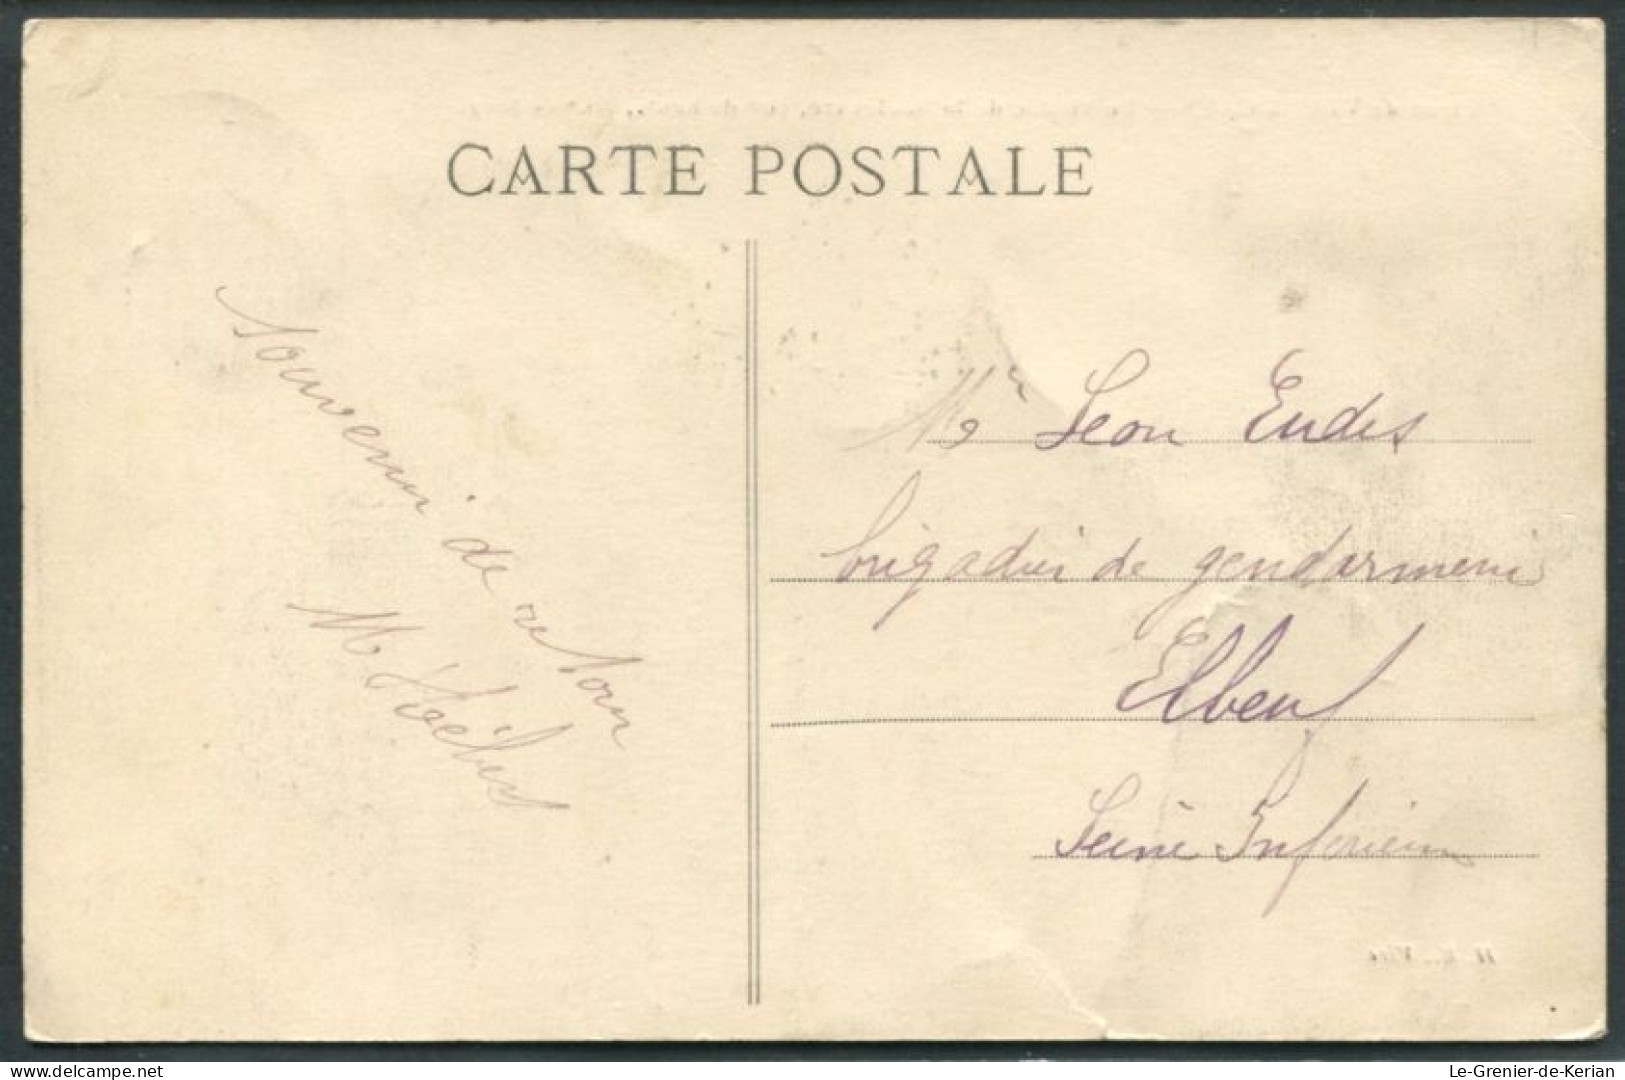 CARTE POSTALE
Souvenir de retour
M Hébert
Mr Léon Eudes
brigadier de gendarmerie
Elbeuf
Seine Inférieure
delcampe.net
Le-Grenier-de-Kerian